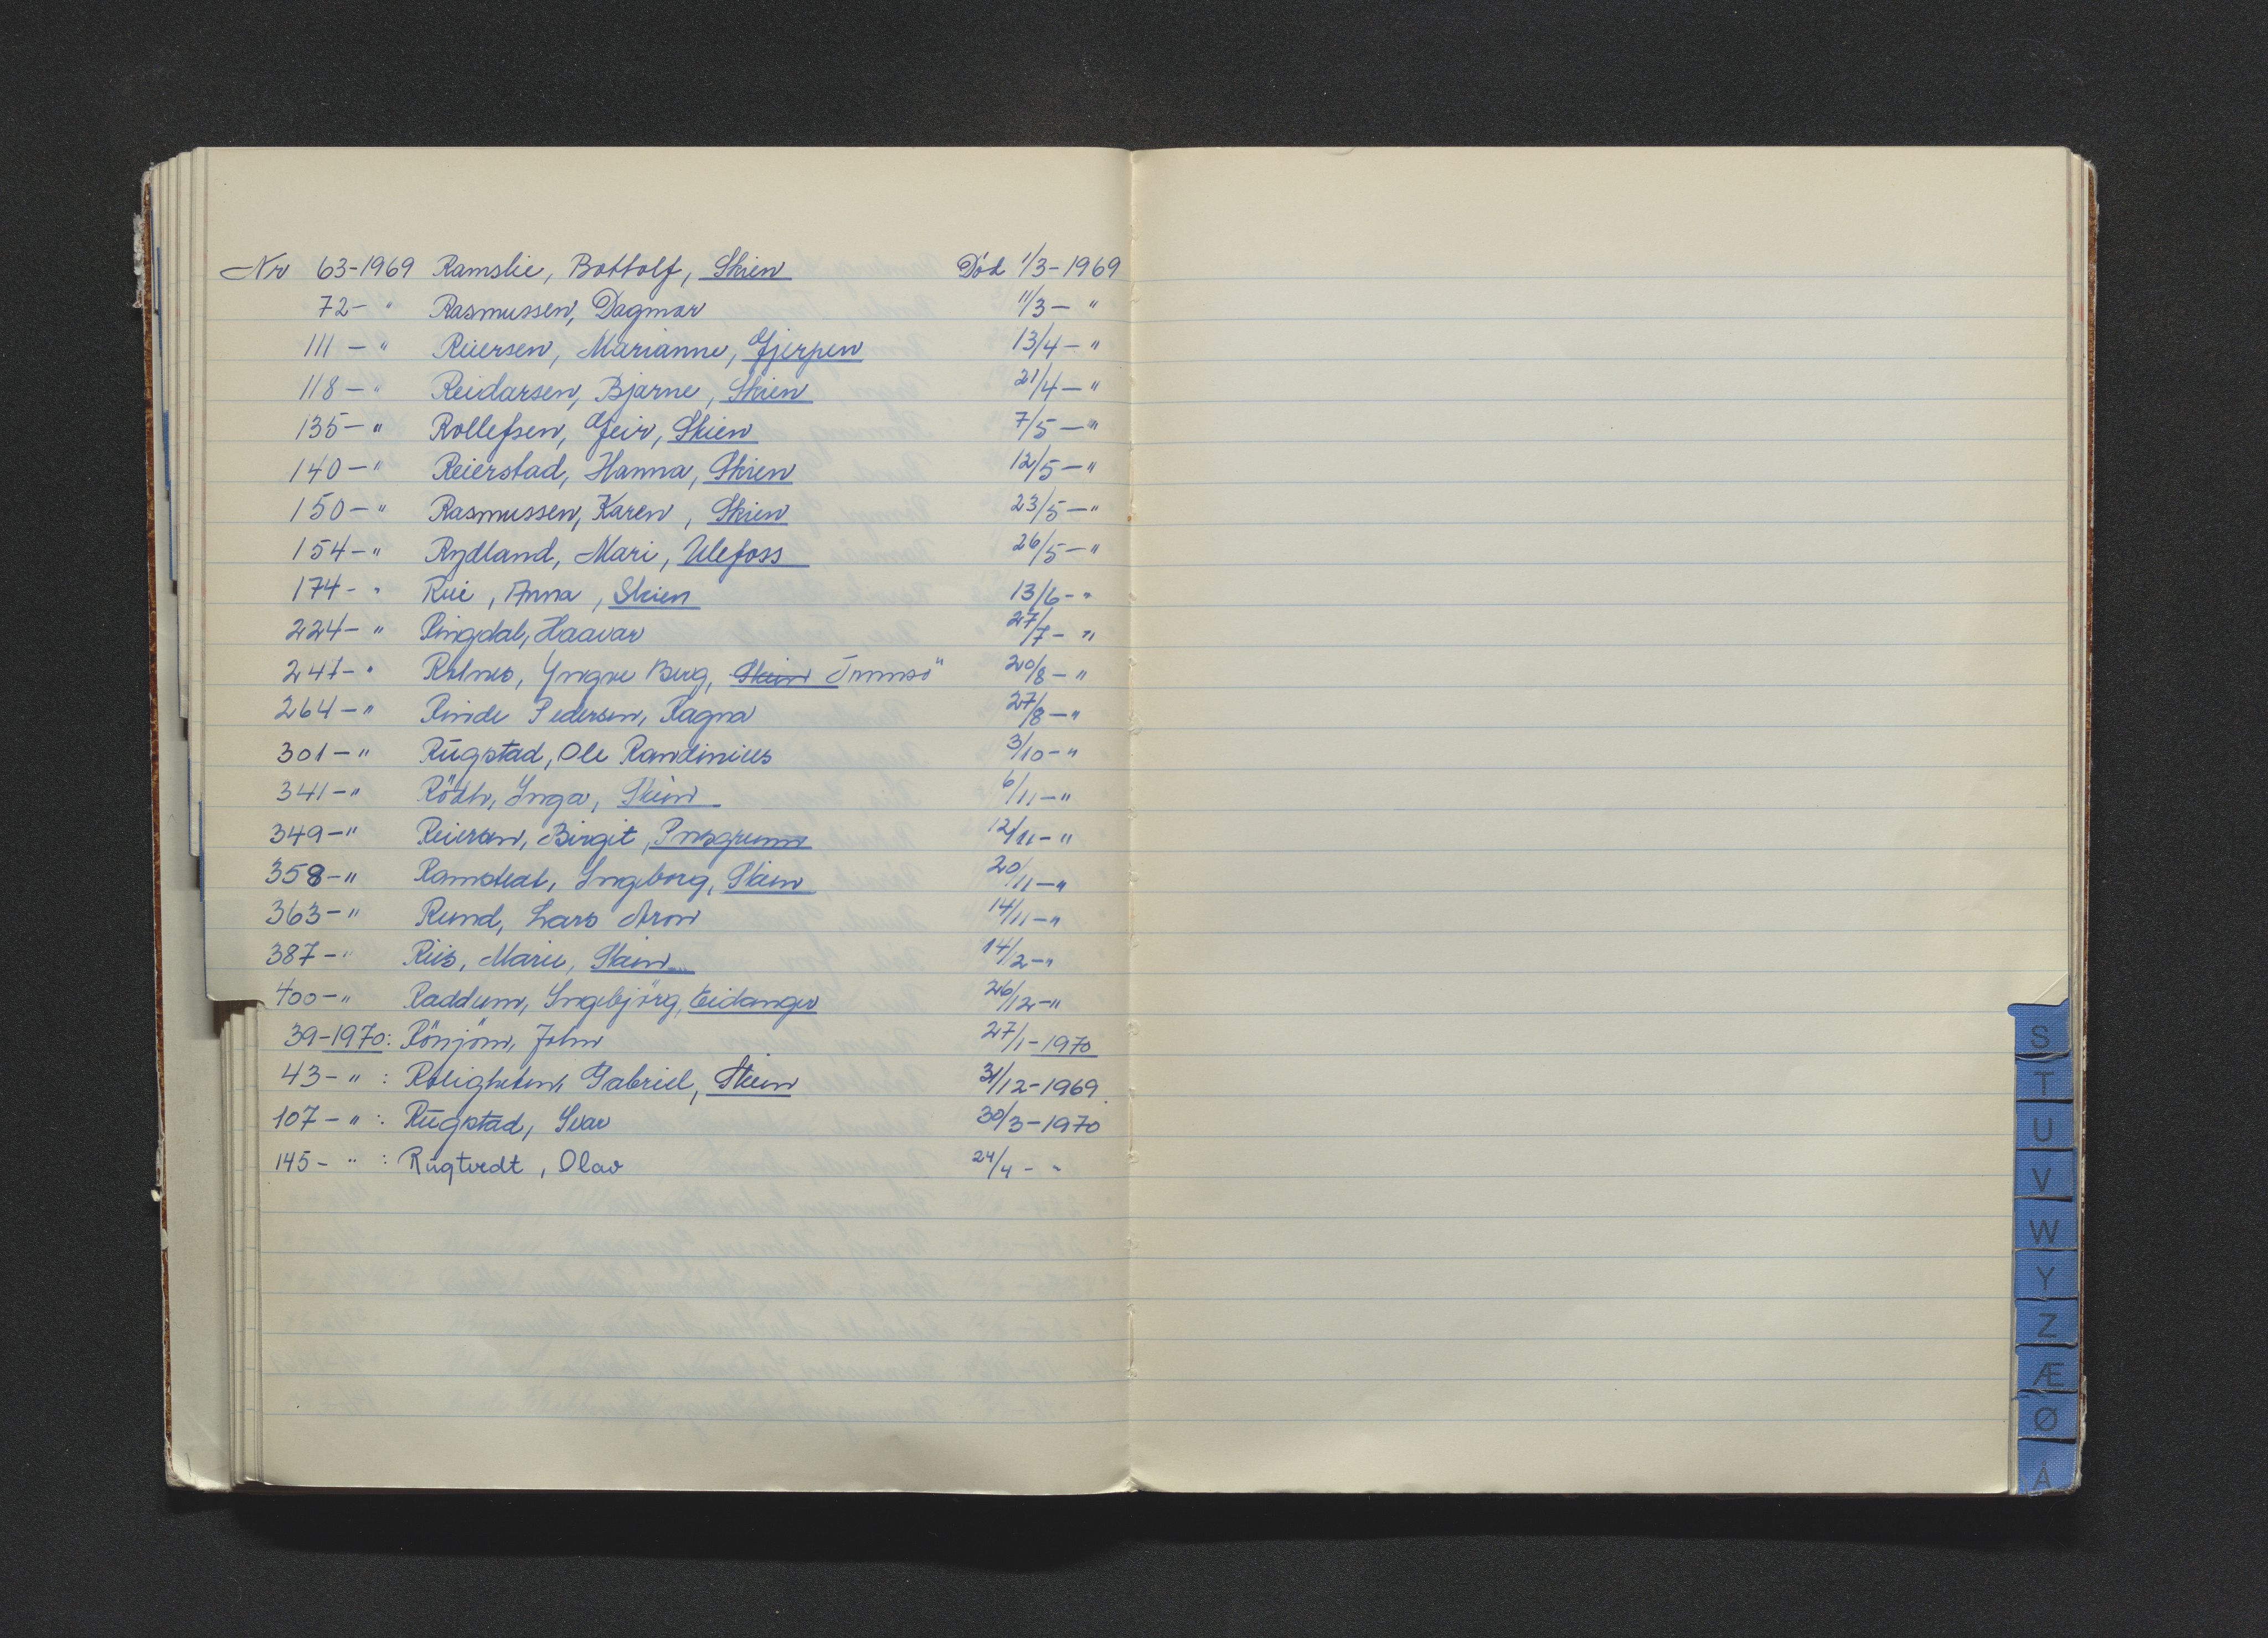 Nr 63-1969 Ramslie, Bottolf, Skien Död 1/3-1969
72- " Rasmussen, Dagmar 11/3- "
111- " Reiersen, Marianne, Gjerpen 13/4- "
118- " Reidarsen, Bjarne, Skien 21/4- "
135- " Rollefsen, Geir, Skien 7/5- "
140- " Reierstad, Hanna, Skien 12/5- "
150- " Rasmussen, Karen, Skien 23/5- "
154- " Rydland, Mari, Ulefoss 26/5- "
174- " Rui, Anna, Skien 13/6- "
224- " Ringdal, Haavar 27/7- "
247- " Yngve Berg, Skien Tromsö 20/8- "
264- " Rinde Pedersen, Ragna 27/8- "
301- " Rugstad, Ole Randinius 3/10- "
341- " Rödh, Inga, Skien 6/11- "
349- " Reiersen, Birgit, Porsgrunn 12/11- "
358- " Ramstedt, Ingeborg, Skien 20/11- "
363- " Rund, Lars Aron 14/11- "
387- " Riis, Marie, Skien 14/2- "
400- " Raddum, Ingebjörg, Eidanger 26/12- "
39-1970: Rönjöm, John 27/1-1970
43- " : Roligheten, Gabriel, Skien 31/12-1969
107- " : Rugstad, Ivar 30/3-1970
145- " : Rugtvedt, Olav 24/4- "
S
T
U
V
W
Y
Z
Æ
Ø
Å